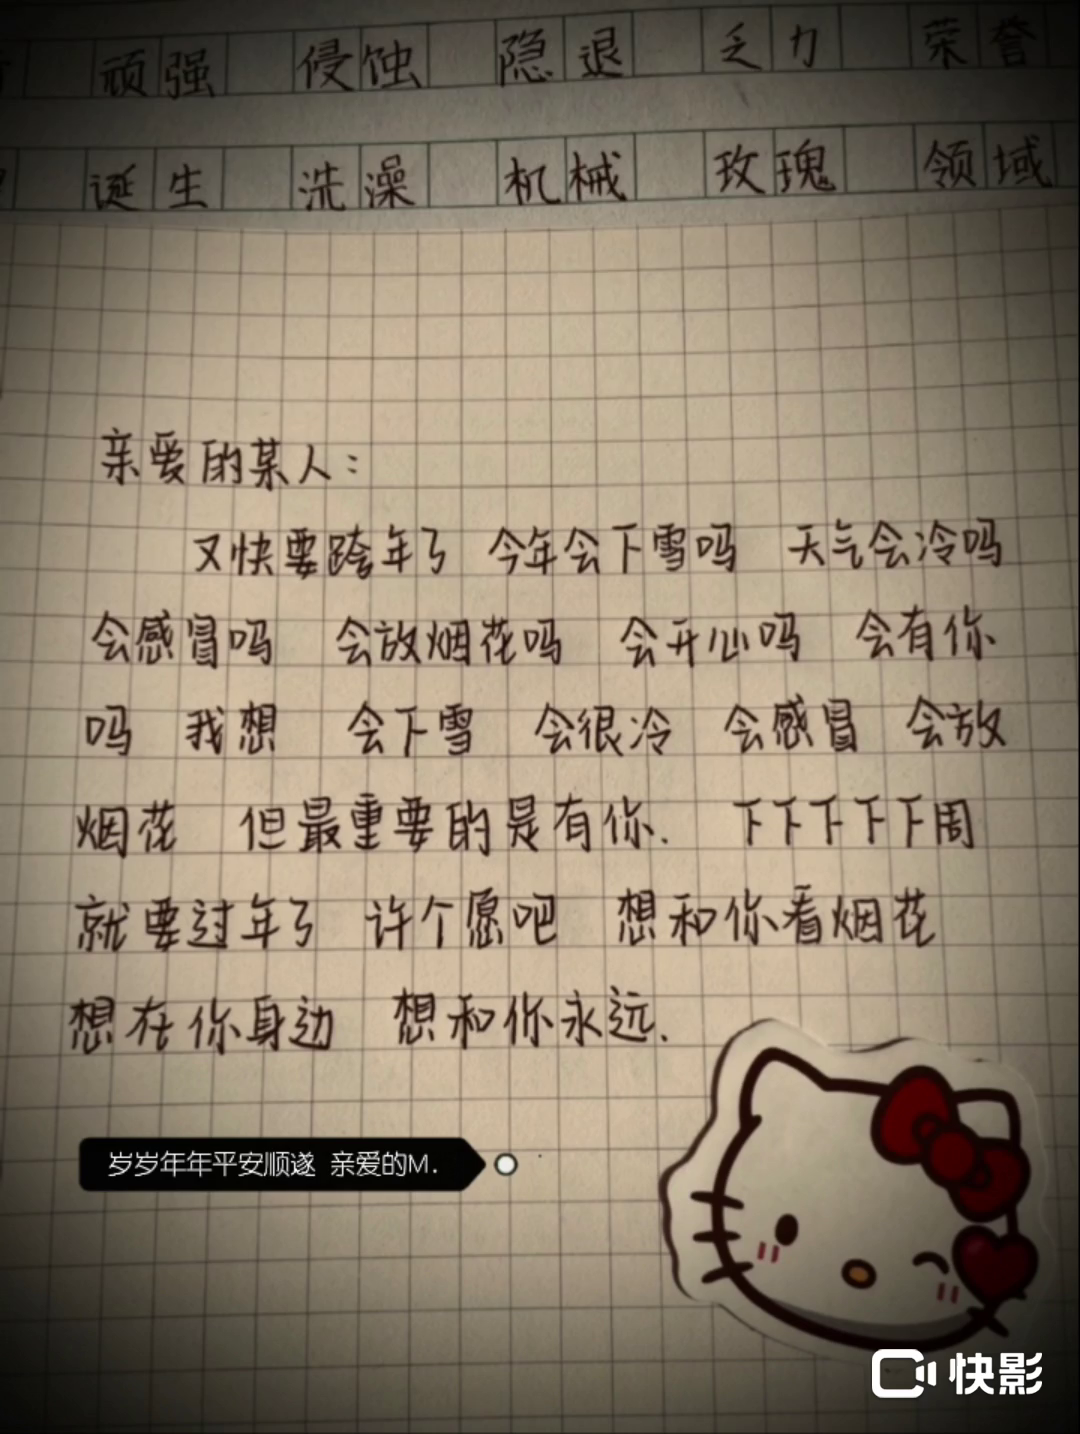 顽强 侵蚀 隐退 乏力 荣誉
诞生 洗澡 机械 玫瑰 领域
亲爱的某人:
又快要跨年了 今年会下雪吗 天气会冷吗
会感冒吗 会放烟花吗 会开心吗 会有你
吗 我想 会下雪 会很冷 会感冒 会放
烟花 但最重要的是有你. 下下下下下周
就要过年了 许个愿吧 想和你看烟花
想在你身边 想和你永远.
岁岁年年平安顺遂 亲爱的M.
快影